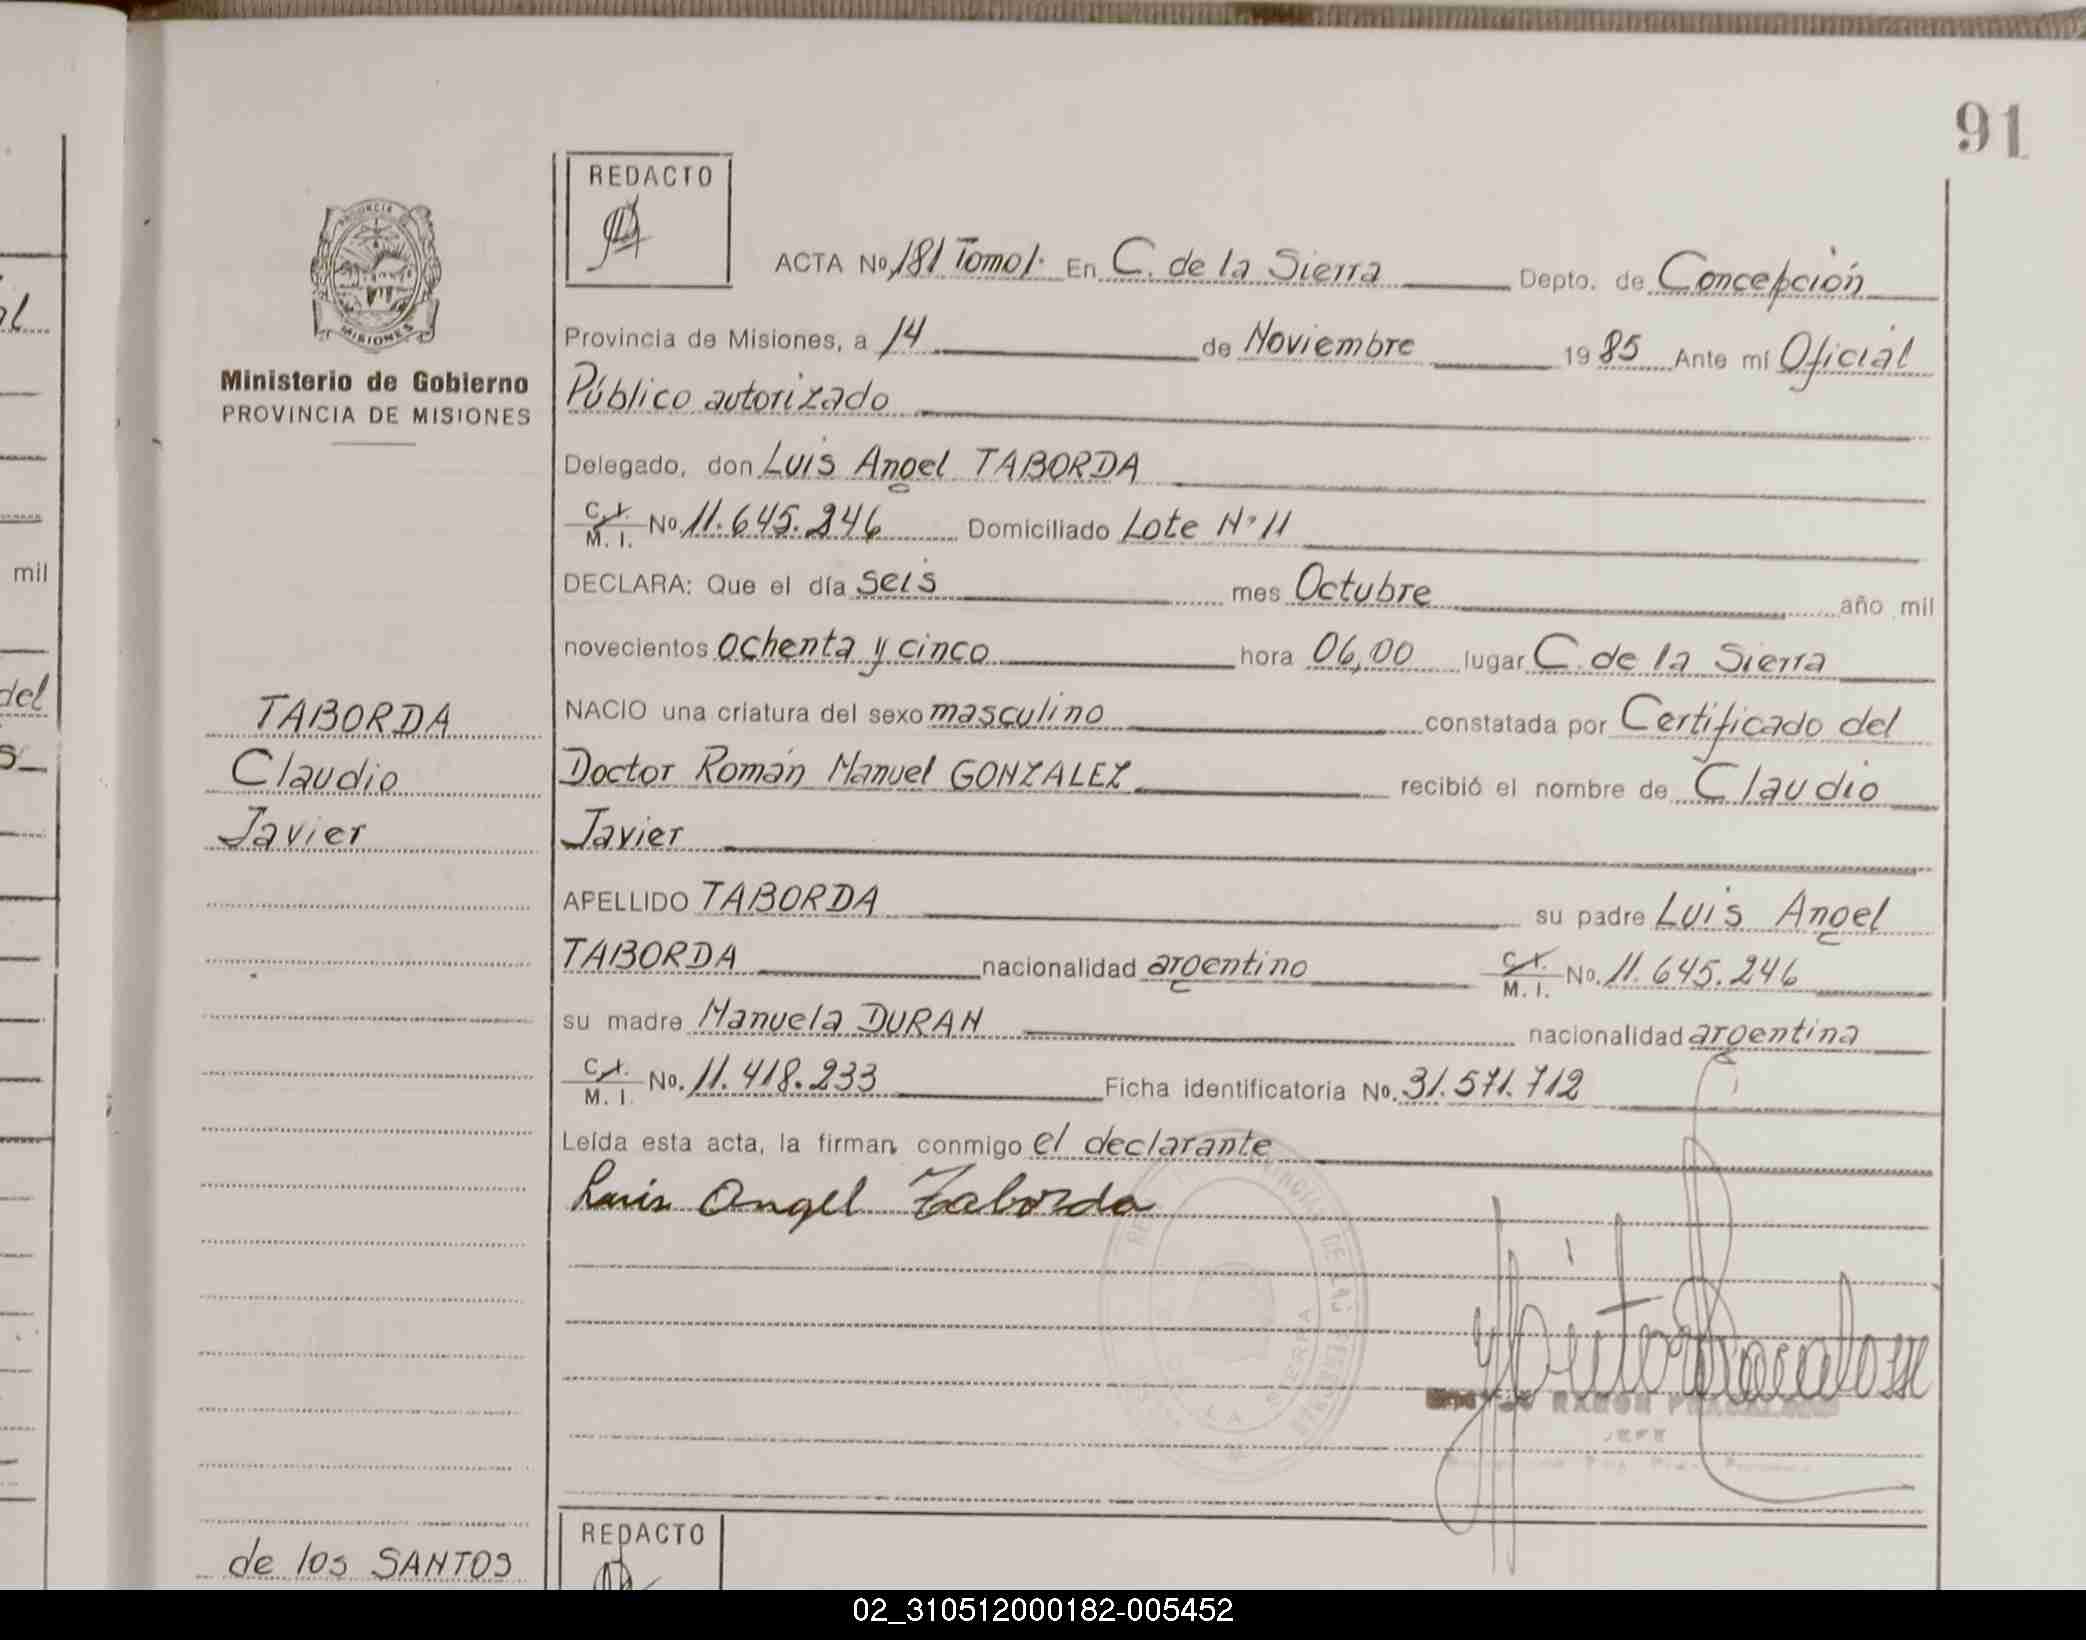 91
REDACTO
ACTA No 181 Tomo 1. En C. de la Sierra Depto. de Concepción
PROVINCIA
MISIONES
Ministerio de Gobierno
PROVINCIA DE MISIONES
Provincia de Misiones, a 14 de Noviembre 1985 Ante mí Oficial
Público autorizado
Delegado, don Luis Angel TABORDA
C. I. M. I. No 11.645.246 Domiciliado Lote N° 11
DECLARA: Que el día seis mes Octubre año mil
novecientos ochenta y cinco hora 06,00 lugar C. de la Sierra
NACIO una criatura del sexo masculino constatada por Certificado del
Doctor Román Manuel GONZALEZ recibió el nombre de Claudio
Javier
APELLIDO TABORDA su padre Luis Angel
TABORDA nacionalidad argentino C. I. M. I. No. 11.645.246
su madre Manuela DURAN nacionalidad argentina
C. I. M. I. No. 11.418.233 Ficha identificatoria No. 31.571.712
Leída esta acta, la firman conmigo el declarante
Luis Angel Taborda
TABORDA
Claudio
Javier
LA SIERRA
RAMON
JEFE
REDACTO
de los SANTOS
mil
del
02_310512000182-005452